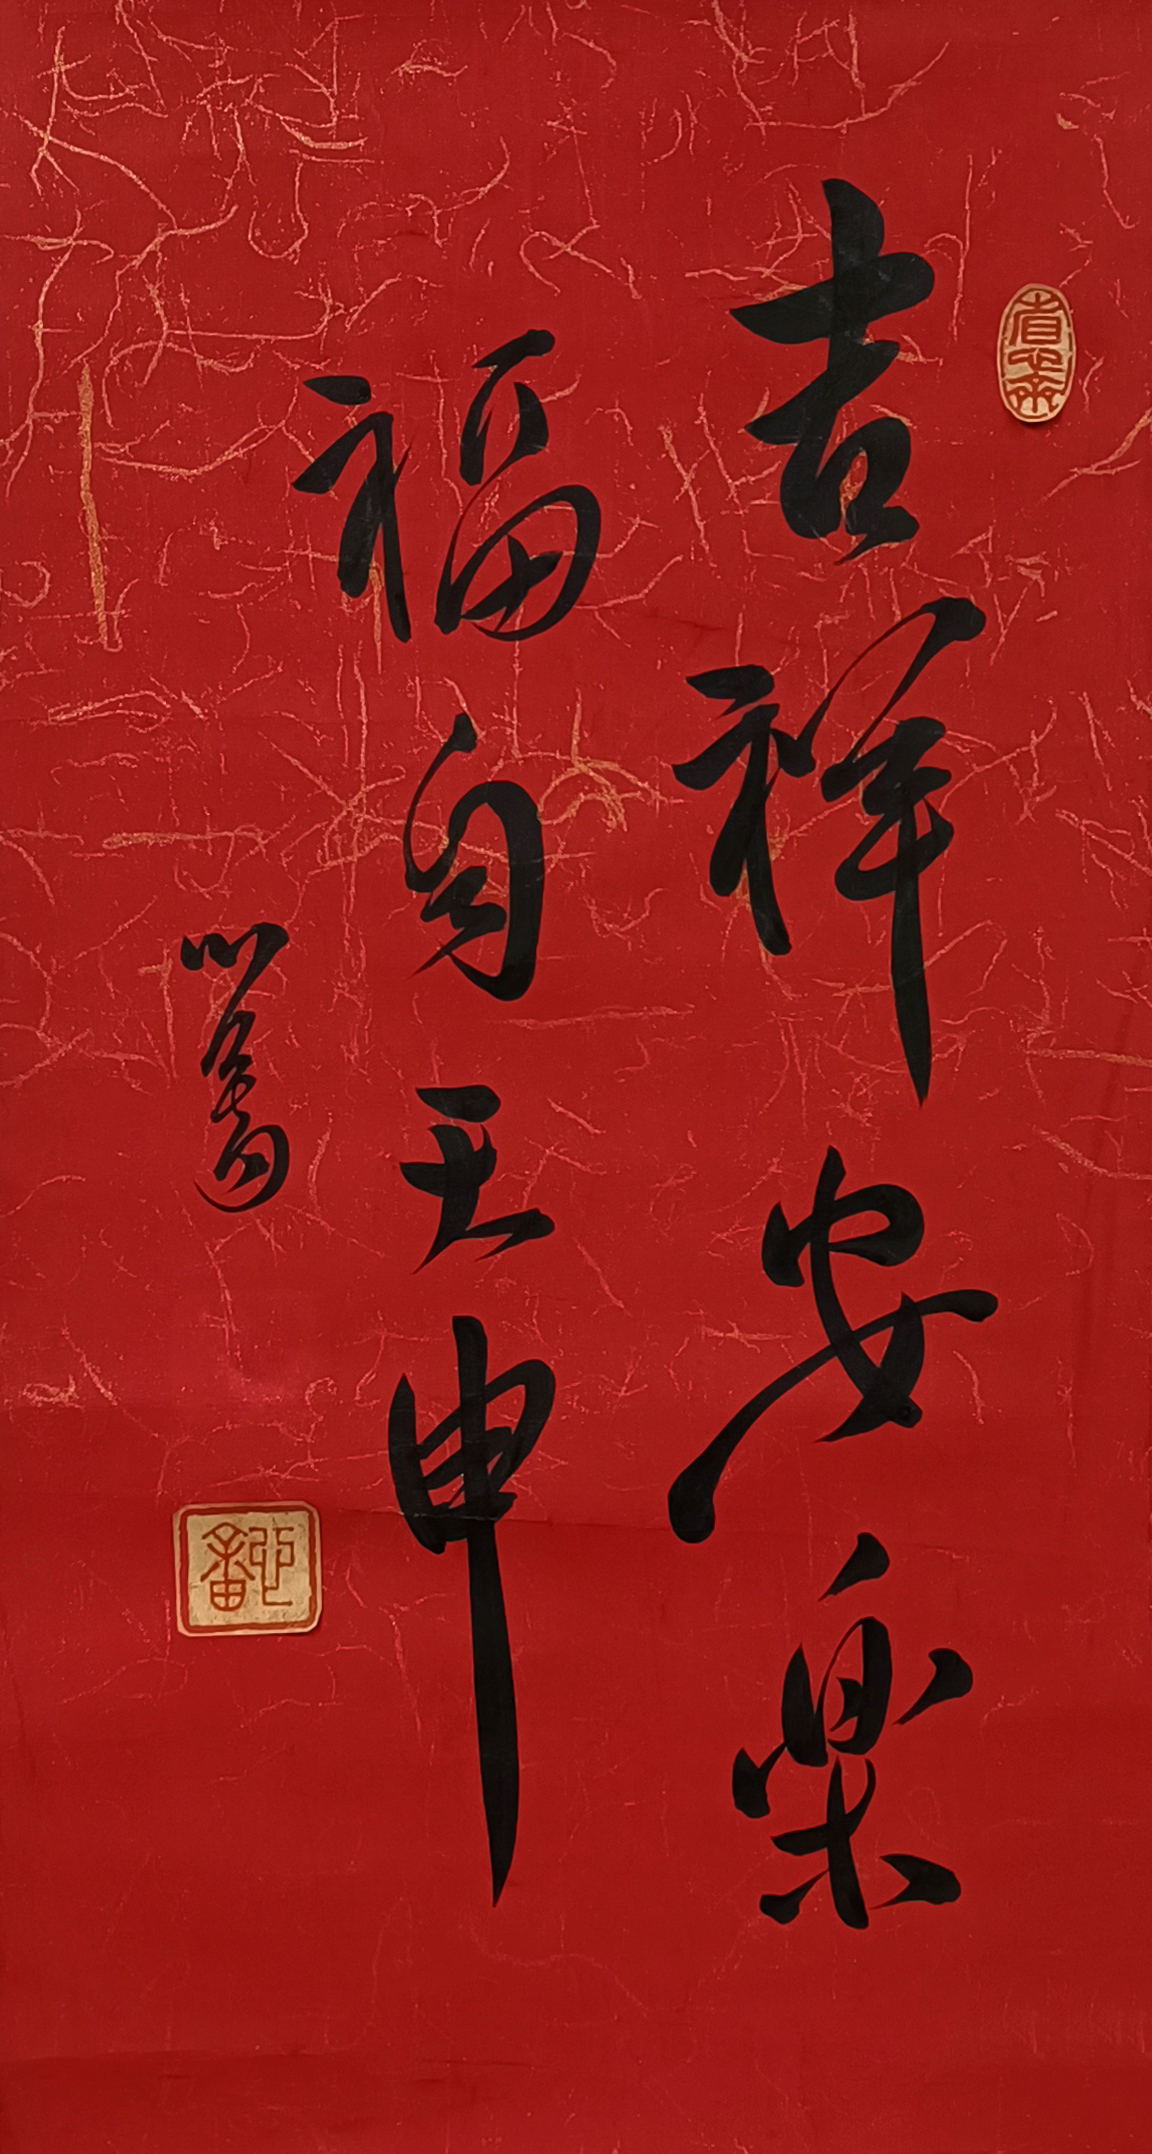 吉祥安樂
福自天申
心畬